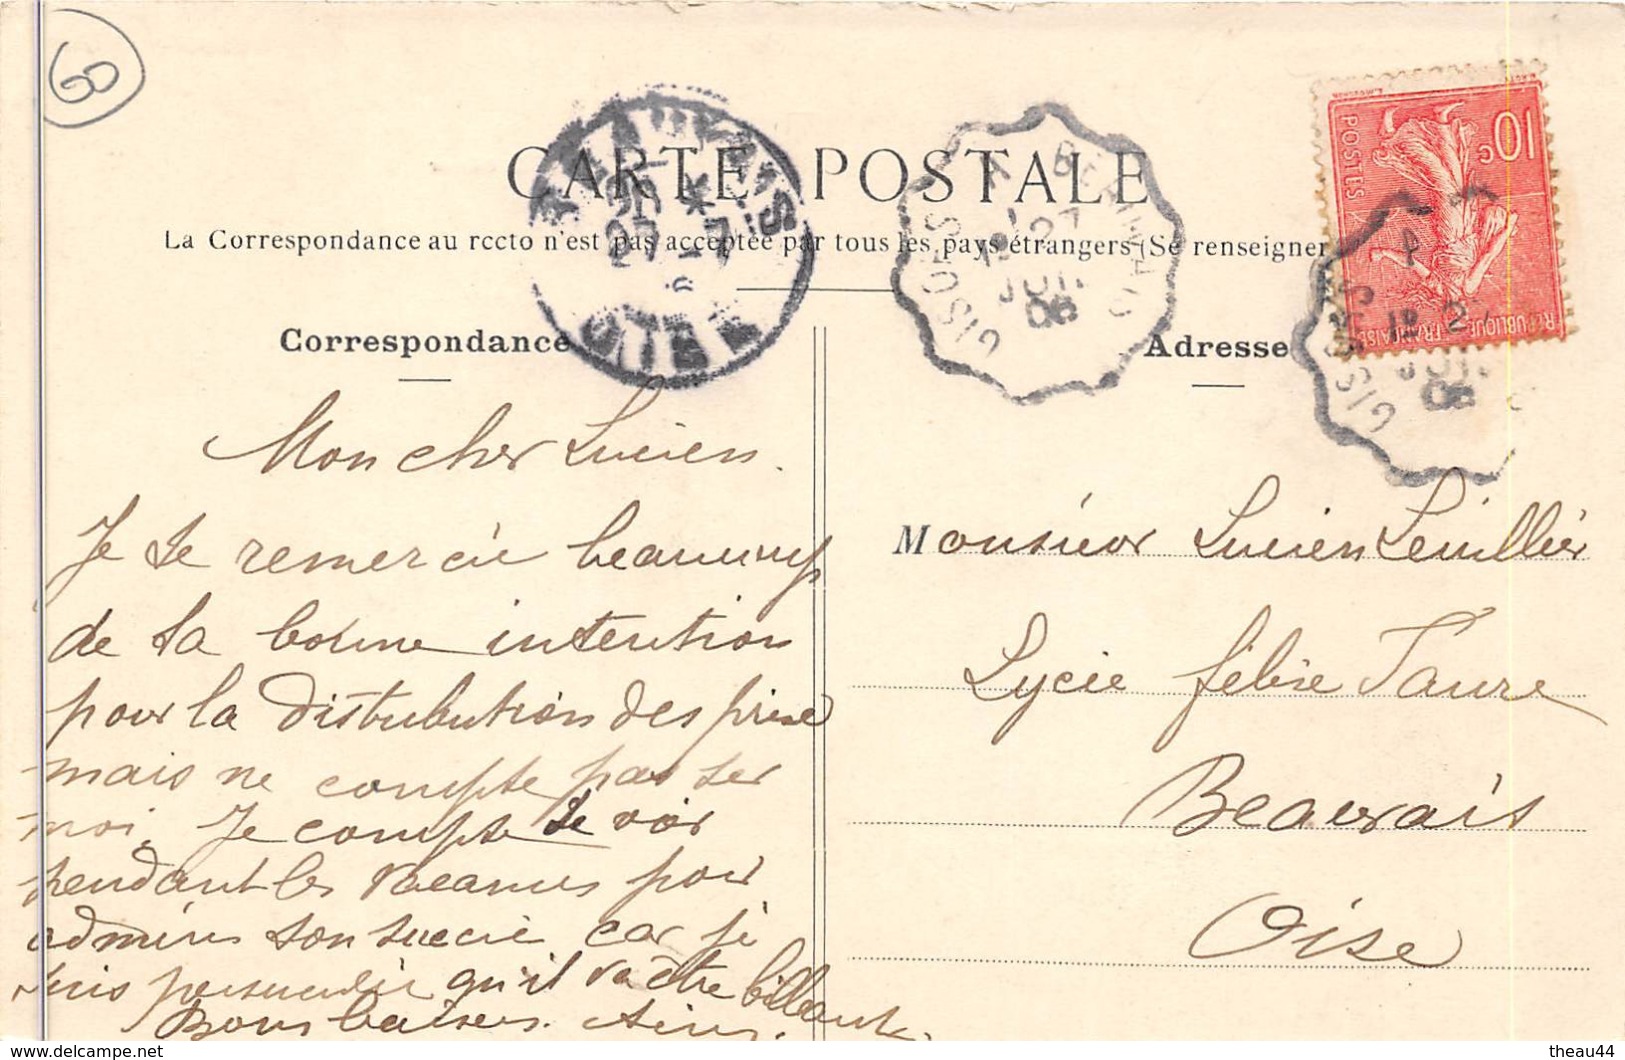 60
CARTE POSTALE
La Correspondance au recto n'est pas acceptée par tous les pays étrangers (Se renseigner
Correspondance
Adresse
BEAUVAIS
OISE
GISORS A BEAUVAIS
27
JUIL
06
GISORS
JUIL
06
10c
POSTES
REPUBLIQUE FRANÇAISE
Mon cher Lucien.
Je te remercie beaucoup
de ta bonne intention
pour la distribution des prix
mais ne compte pas sur
moi. Je compte te voir
pendant les vacances pour
admirer ton succès car je
suis persuadé qu'il va être brillant.
Bons baisers.
Monsieur Lucien Leuillier
Lycée Félix Faure
Beauvais
Oise
theau44